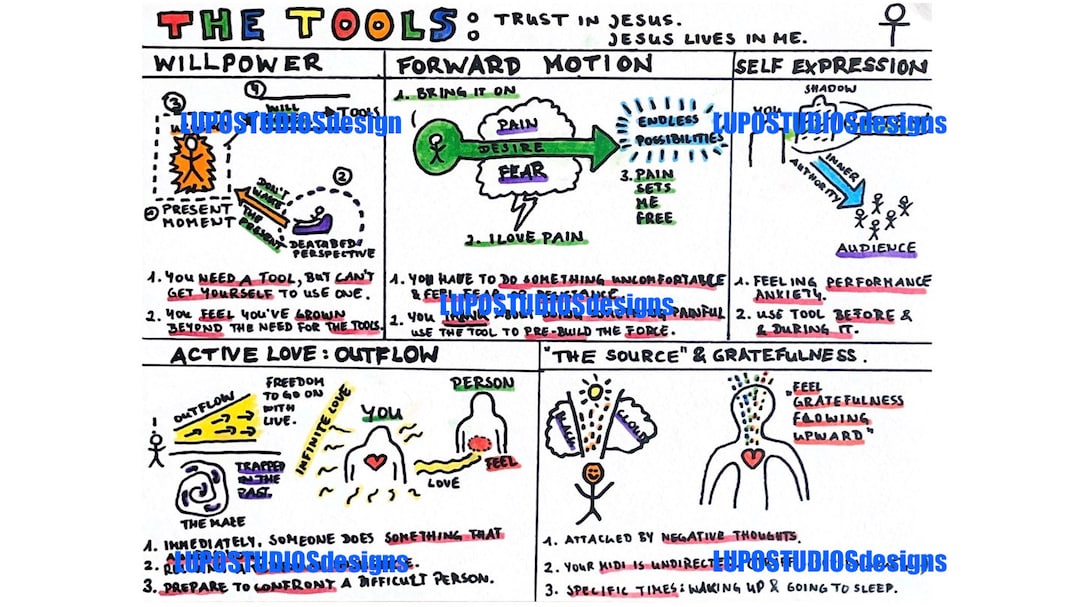 THE TOOLS: TRUST IN JESUS.
JESUS LIVES IN ME.
WILLPOWER
3
4
WILL
TOOLS
LUPOSTUDIOSdesign
PRESENT
MOMENT
DON'T
WASTE
THE PRESENT
2
DEATHBED
PERSPECTIVE
1. YOU NEED A TOOL, BUT CAN'T
GET YOURSELF TO USE ONE.
2. YOU FEEL YOU'VE GROWN
BEYOND THE NEED FOR THE TOOLS.
FORWARD MOTION
1. BRING IT ON
PAIN
DESIRE
FEAR
ENDLESS
POSSIBILITIES
2. I LOVE PAIN
3. PAIN
SETS
ME
FREE
1. YOU HAVE TO DO SOMETHING UNCOMFORTABLE
& FEEL FEAR
LUPOSTUDIOSdesigns
2. YOU PAINFUL
USE THE TOOL TO PRE-BUILD THE FORCE.
SELF EXPRESSION
SHADOW
YOU
LUPOSTUDIOSdesigns
INNER
AUTHORITY
AUDIENCE
1. FEELING PERFORMANCE
ANXIETY.
2. USE TOOL BEFORE &
& DURING IT.
ACTIVE LOVE: OUTFLOW
OUTFLOW
FREEDOM
TO GO ON
WITH
LIVE.
TRAPPED
IN THE
PAST.
THE MAZE
INFINITE LOVE
YOU
PERSON
FEEL
LOVE
1. IMMEDIATELY, SOMEONE DOES SOMETHING THAT
2.
LUPOSTUDIOSdesigns
3. PREPARE TO CONFRONT A DIFFICULT PERSON.
"THE SOURCE" & GRATEFULNESS.
BLACK
CLOUD
"FEEL
GRATEFULNESS
FLOWING
UPWARD"
1. ATTACKED BY NEGATIVE THOUGHTS.
2. YOUR MIDI IS UNDIRECTED
LUPOSTUDIOSdesigns
3. SPECIFIC TIMES: WAKING UP & GOING TO SLEEP.